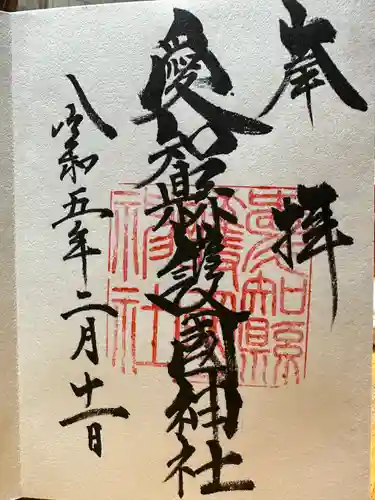 奉拝
愛知縣護國神社
令和五年二月十一日
愛知縣
護國
神社